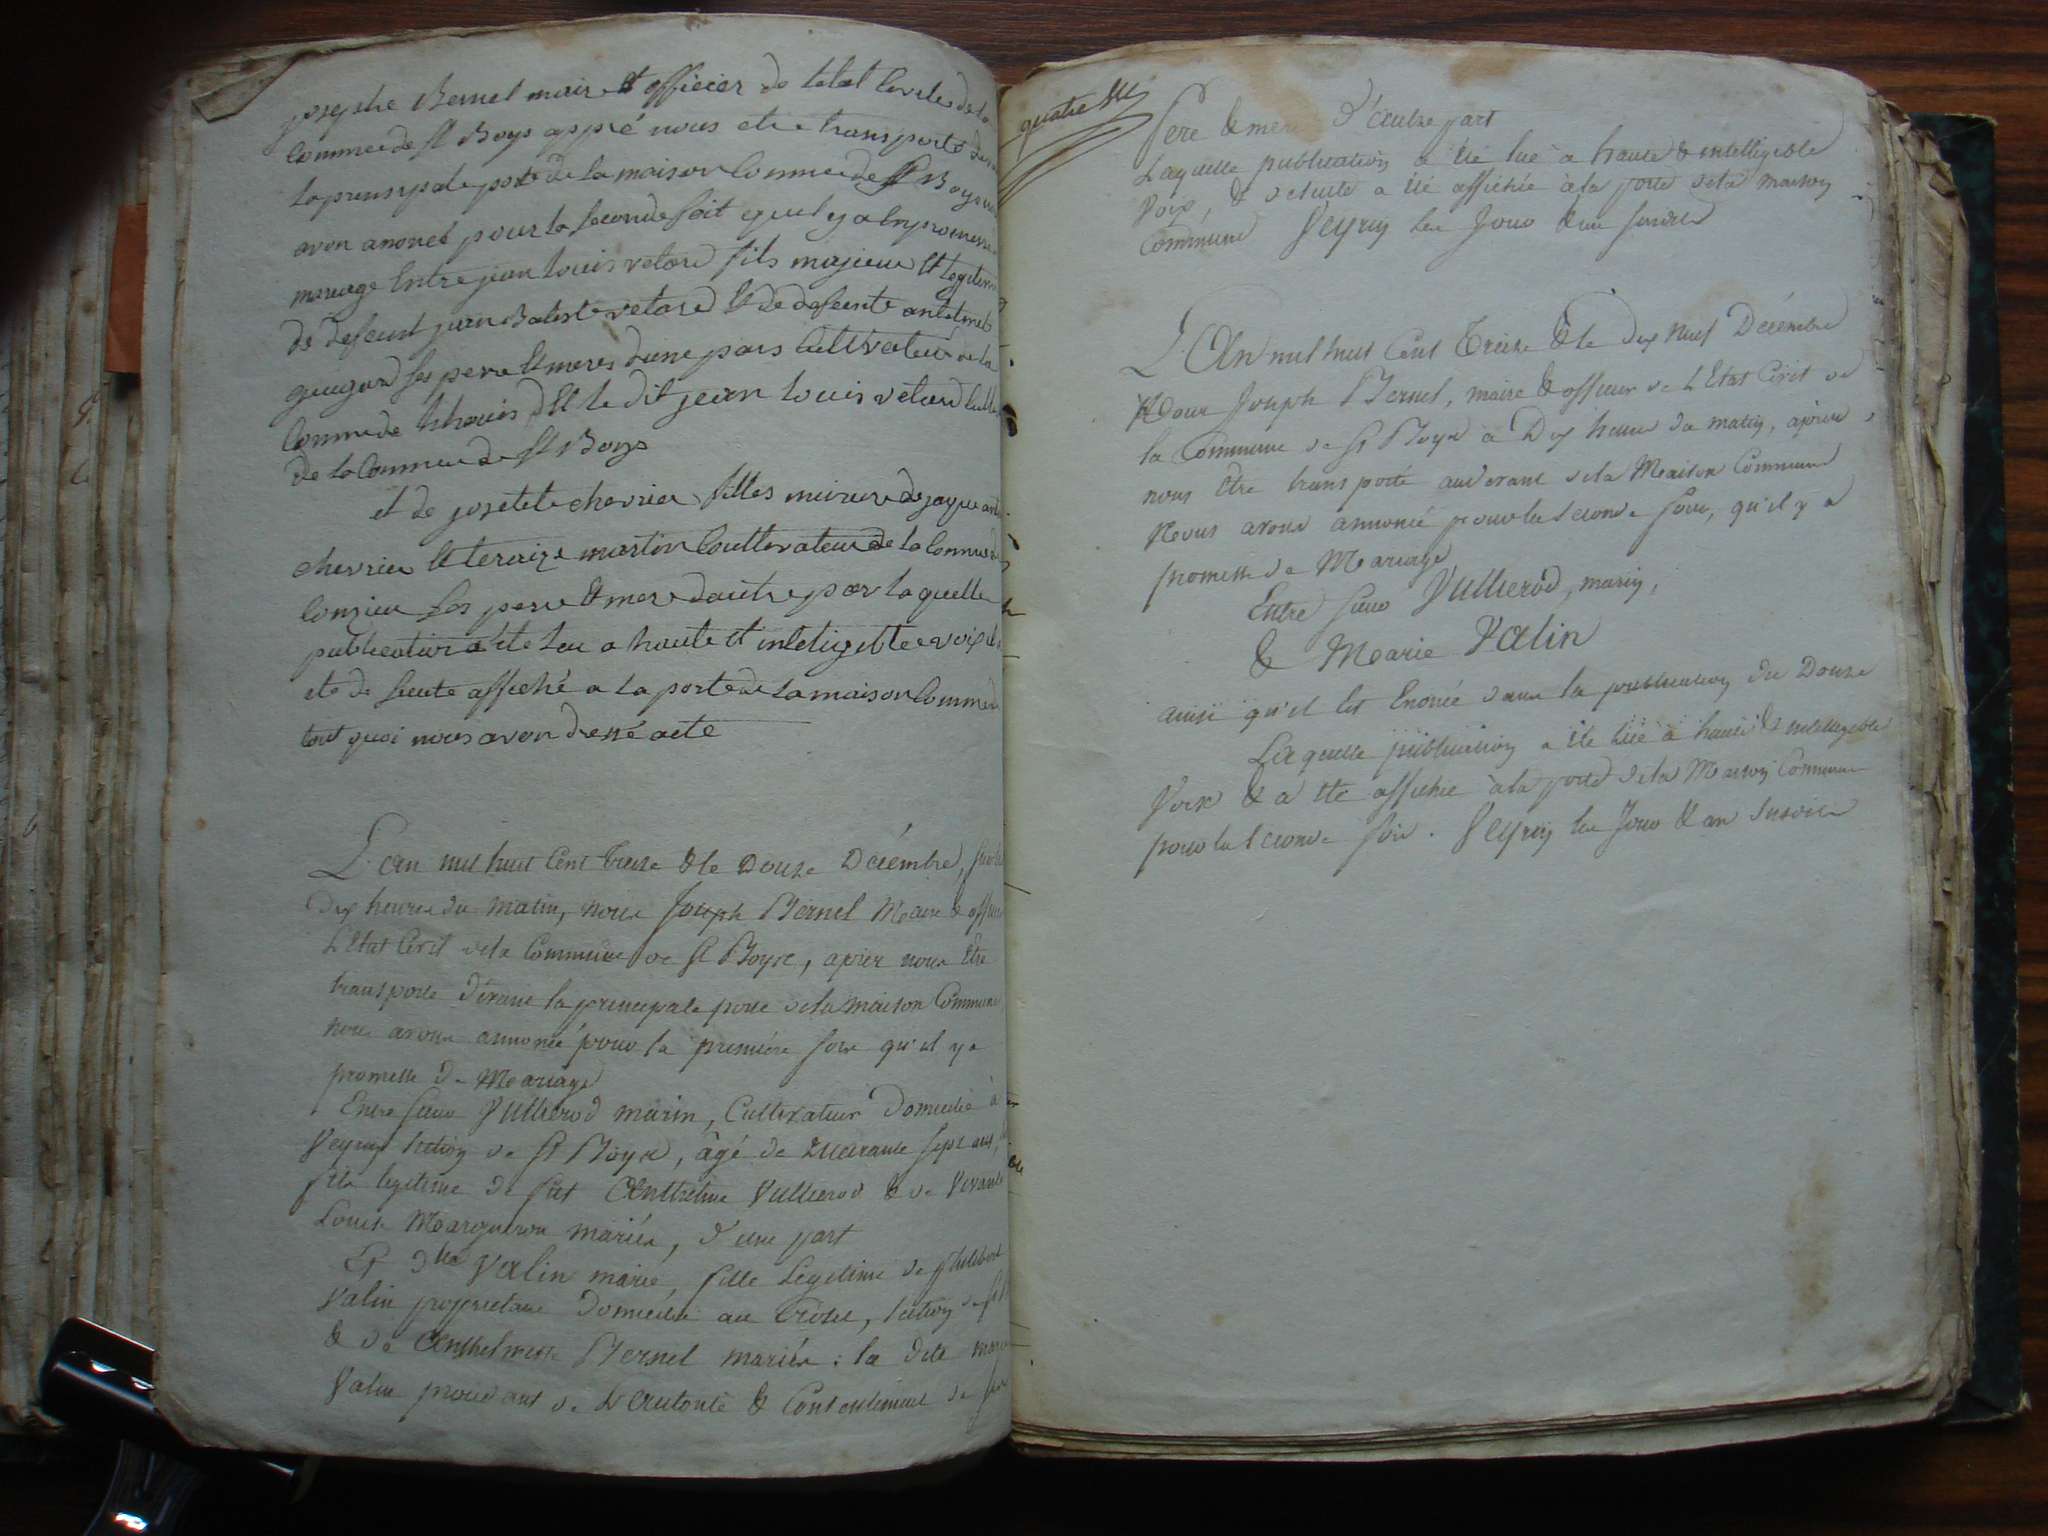 josephe Bernel maire et officier de letat Civile de la
Commee de St Boys appré nous etre transporté
la prensipale porte de la maison Commee de St Boys
avon anoncé pour la seconde foit quel y a
mariage Entre jean louis vetard fils majeur et legiteme
de defeunt jean Batiste vetard et de defeunte antelmete
ses pere et meres dune pars Cultivateur de la
Comme de et le dit jean louis vetard
de la Commee de St Boys
et de josetete chevrier filles mineure de jaque
chevrier et teraize martin Coultivateur de la Commee de
Conzieu ses pere et mere dautre par laquelle
publication a été Leu a haute et inteligiblee voix
ete de suite affiché a la porte de la maison Comme
tout quoi nous avon dressé acte
L'an mil huit Cent Treize & le Douze Décémbre,
Dix heures du matin, nous Joseph Bernel Maire &
L'Etat Civil de la Commune de St Boys, après nous être
transporté dévant la principale porte de la maison Commune
nous avons annoncé pour la première fois qu'il y a
promesse de Mariage
Entre sieur Vullierod marin, Cultivateur Domicilié à
Veyrin section de St Boys, âgé de quarante sept ans,
fils legitime de fût Anthelme Vullierod & de vivante
Louise Margueron mariés, d'une part
Et dlle Valin marie, fille Legitime de philibert
Valin propriétaire Domicilié au Crévre, section de St
& de Anthelmette Bernel mariés : la dite marie
Valin procedant de L'autorité & Consentement de ses
quatre
Pere & mere D'autre part
Laquelle publication a été lue à haute & intelligible
Voix, & de suite a été affichée à la porte de la maison
Commune Veyrin les Jour & an susdits
L'An mil huit Cent Treize & le dix neuf Décémbre
Nous Joseph Bernel, maire & officier de L'Etat Civil de
la Commune de St Boys à Dix heures du matin, après
nous être transporté audevant de la Maison Commune
Nous avons annoncé pour la seconde fois, qu'il y a
promesse de Mariage
Entre sieur Vullierod, marin,
& Marie Valin
ainsi qu'il est Enoncé dans la publication du Douze
Laquelle publication a été lue à haute & intelligible
Voix & a été affichée à la porte de la Maison Commune
pour la seconde fois. Veyrin les Jour & an susdits